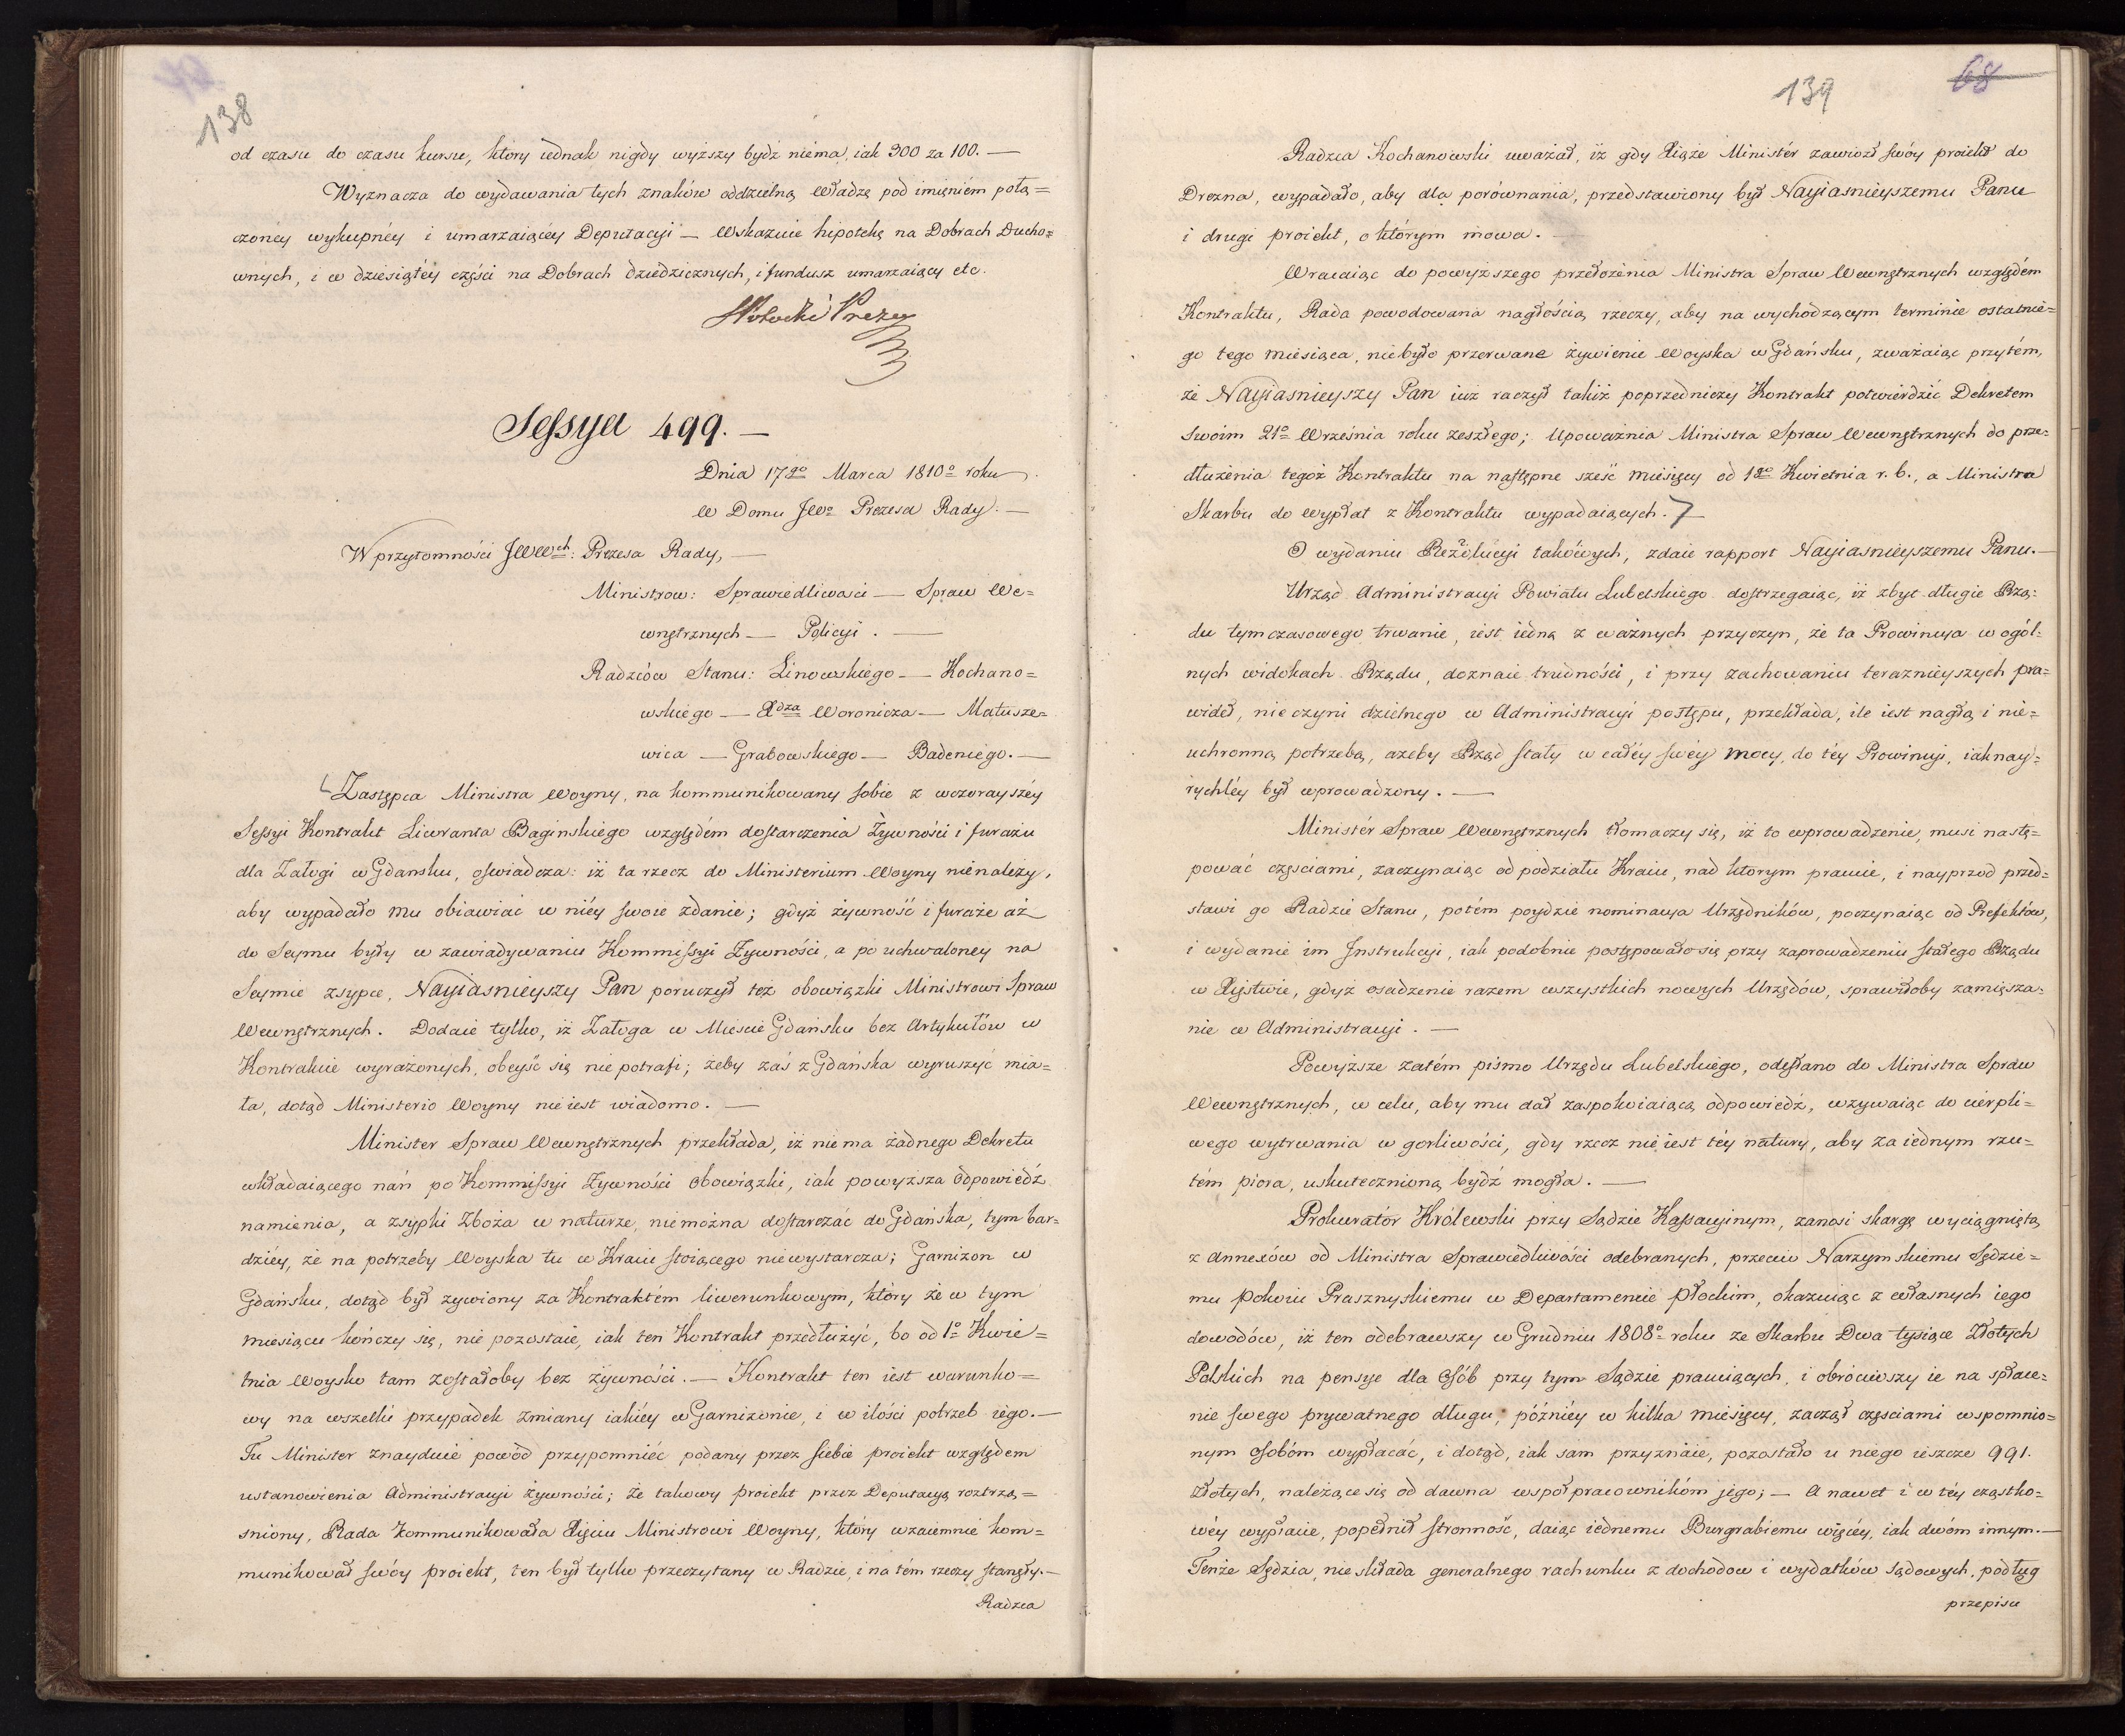 138
od czasu do czasu kursu, ktory iednak nigdy wyższy bydź niema, iak 300 za 100. —
Wyznacza do wydawania tych znaków oddzielną Władzę pod imięniem połą=
czonéy wykupnéy i umarzaiącéy Deputacyi — Wskazuie hipotekę na Dobrach Ducho=
wnych, i w dziesiątéy części na Dobrach dziedzicznych, i fundusz umarzaiący etc.
Prezes
Sessya 499. —
Dnia 17go Marca 1810o roku.
W Domu JWo Prezesa Rady. —
W przytomności JWWch: Prezesa Rady, —
Ministrow: Sprawiedliwości — Spraw We=
wnętrznych — Policyi. —
Radzców Stanu: Linowskiego — Kochano=
wskiego — Xdza Woronicza — Matusze=
wica — Grabowskiego — Badeniego. —
Zastępca Ministra Woyny, na kommunikowany sobie z wczorayszéy
Sessyi Kontrakt Liwranta Baginskiego względém dostarczenia Żywności i furażu
dla Załogi w Gdansku, oswiadcza: iż ta rzecz do Ministerium Woyny nienależy,
aby wypadało mu obiawiać w niéy swoie zdanie; gdyż żywność i furaże aż
do Seymu były w zawiadywaniu Kommissyi Żywności, a po uchwaloney na
Seymie zsypce, Nayiasnieyszy Pan poruczył też obowiązki Ministrowi Spraw
Wewnętrznych. Dodaie tylko, iż Załoga w Mieście Gdańsku bez Artykułów w
Kontrakcie wyrażonych, obeyść się nie potrafi; żeby zaś z Gdańska wyruszyć mia=
ła, dotąd Ministerio Woyny nie iest wiadomo. —
Minister Spraw Wewnętrznych przekłada, iż nie ma żadnego Dekretu
wkładaiącego nań po Kommissyi Żywności obowiązki, iak powyższa odpowiedź
namienia, a zsypki Zboża w naturze, niemożna dostarczać do Gdańska, tym bar=
dziéy, że na potrzeby Woyska tu w Kraiu stoiącego niewystarcza; Garnizon w
Gdańsku, dotąd był żywiony za Kontraktém liwerunkowym, który że w tym
miesiącu kończy się, nie pozostaie, iak ten Kontrakt przedłużyć, bo od 1o Kwie=
tnia Woysko tam zostałoby bez żywności. — Kontrakt ten iest warunko=
wy na wszelki przypadek zmiany iakiéy w Garnizonie, i w ilości potrzeb iego. —
Tu Minister znayduie powód przypomniéć podany przez siebie proiekt względem
ustanowienia Administracyi żywności; że takowy proiekt przez Deputacyą roztrzą=
sniony, Rada kommunikowała Xięciu Ministrowi Woyny, który wzaiemnie kom=
munikował swóy proiekt, ten był tylko przeczytany w Radzie, i na tém rzeczy stanęły. —
Radzca
139
68
Radzca Kochanowski uważał, iż gdy Xiąże Ministér zawiozł swóy proiekt do
Drezna, wypadało, aby dla porównania, przedstawiony był Nayiasnieyszemu Panu
i drugi proiekt, o którym mowa. —
Wracaiąc do powyższego przełożenia Ministra Spraw Wewnętrznych względém
Kontraktu, Rada powodowana nagłością rzeczy, aby na wychodzącym terminie ostatnie=
go tego miesiąca, niebyło przerwane żywienie Woyska w Gdańsku, zważaiąc przytém,
że Nayiasnieyszy Pan iuż raczył takiż poprzedniczy Kontrakt potwierdzić Dekretem
Swoim 21o Września roku zeszłego; Upoważnia Ministra Spraw Wewnętrznych do prze=
dłużenia tegoż Kontraktu na następne sześć miesięcy od 1go Kwietnia r. b., a Ministra
Skarbu do wypłat z Kontraktu wypadaiących. —
O wydaniu Rezolucyi takowych, zdaie rapport Nayiasnieyszemu Panu. —
Urząd Administracyi Powiatu Lubelskiego dostrzegaiąc, iż zbyt długie Rzą=
du tymczasowego trwanie, iest iedną z ważnych przyczyn, że ta Prowincya w ogól=
nych widokach Rządu, doznaie trudności, i przy zachowaniu teraznieyszych pra=
wideł, nie czyni dzielnego w Administracyi postępu, przekłada, ile iest nagłą i nie=
uchronną potrzebą, ażeby Rząd stały w całéy swéy mocy, do téy Prowincyi, iak nay=
rychléy był wprowadzony. —
Ministér Spraw Wewnętrznych tłomaczy się, iż to wprowadzenie, musi nastę=
pować częsciami, zaczynaiąc od podziału Kraiu, nad ktorym pracuie, i nayprzod przed=
stawi go Radzie Stanu, potém poydzie nominacya Urzędników, poczynaiąc od Prefektów,
i wydanie im Instrukcyi, iak podobnie postępowało się przy zaprowadzeniu stałego Rządu
w Xięstwie, gdyż osadzenie razem wszystkich nowych Urzędów, sprawiłoby zamiesza=
nie w Administracyi. —
Powyższe zatém pismo Urzędu Lubelskiego, odesłano do Ministra Spraw
Wewnętrznych, w celu, aby mu dał zaspokoiaiącą odpowiedź, wzywaiąc do cierpli=
wego wytrwania w gorliwości, gdy rzecz nie iest téy natury, aby za iednym rzu=
tém piora, uskutecznioną bydź mogła. —
Prokuratór Królewski przy Sądzie Kassacyinym, zanosi skargę wyciągniętą
z Annexów od Ministra Sprawiedliwości odebranych, przeciw Narzymskiemu Sędzie=
mu Pokoiu Prasznyskiemu w Departamencie Płockim, okazuiąc z własnych iego
dowodów, iż ten odebrawszy w Grudniu 1808o roku ze Skarbu Dwa tysiące Złotych
Polskich na pensye dla Osób przy tym Sądzie pracuiących, i obróciwszy ie na spłace=
nie swego prywatnego długu, późniéy w kilka miesięcy, zaczął częsciami wspomnio=
nym Osobóm wypłacać, i dotąd, iak sam przyznaie, pozostało u niego ieszcze 991.
Złotych, należące się od dawna współpracownikóm jego; — A nawet i w téy cząstko=
wéy wypłacie, popełnił stronność, daiąc iednemu Burgrabiemu więcéy, iak dwóm innym. —
Tenże Sędzia, nie składa generalnego rachunku z dochodow i wydatków sądowych, podług
przepisu